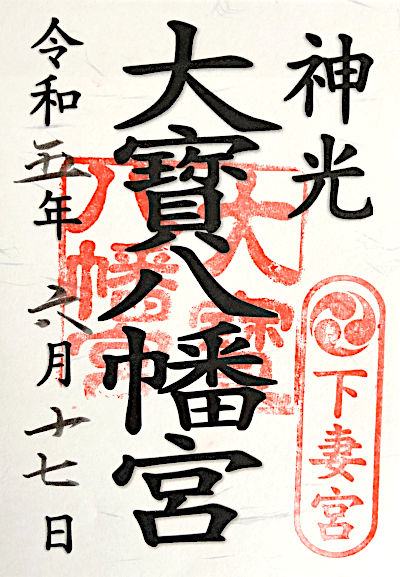 神光
下妻宮
大寶八幡宮
大寶
八幡宮
令和五年六月十七日